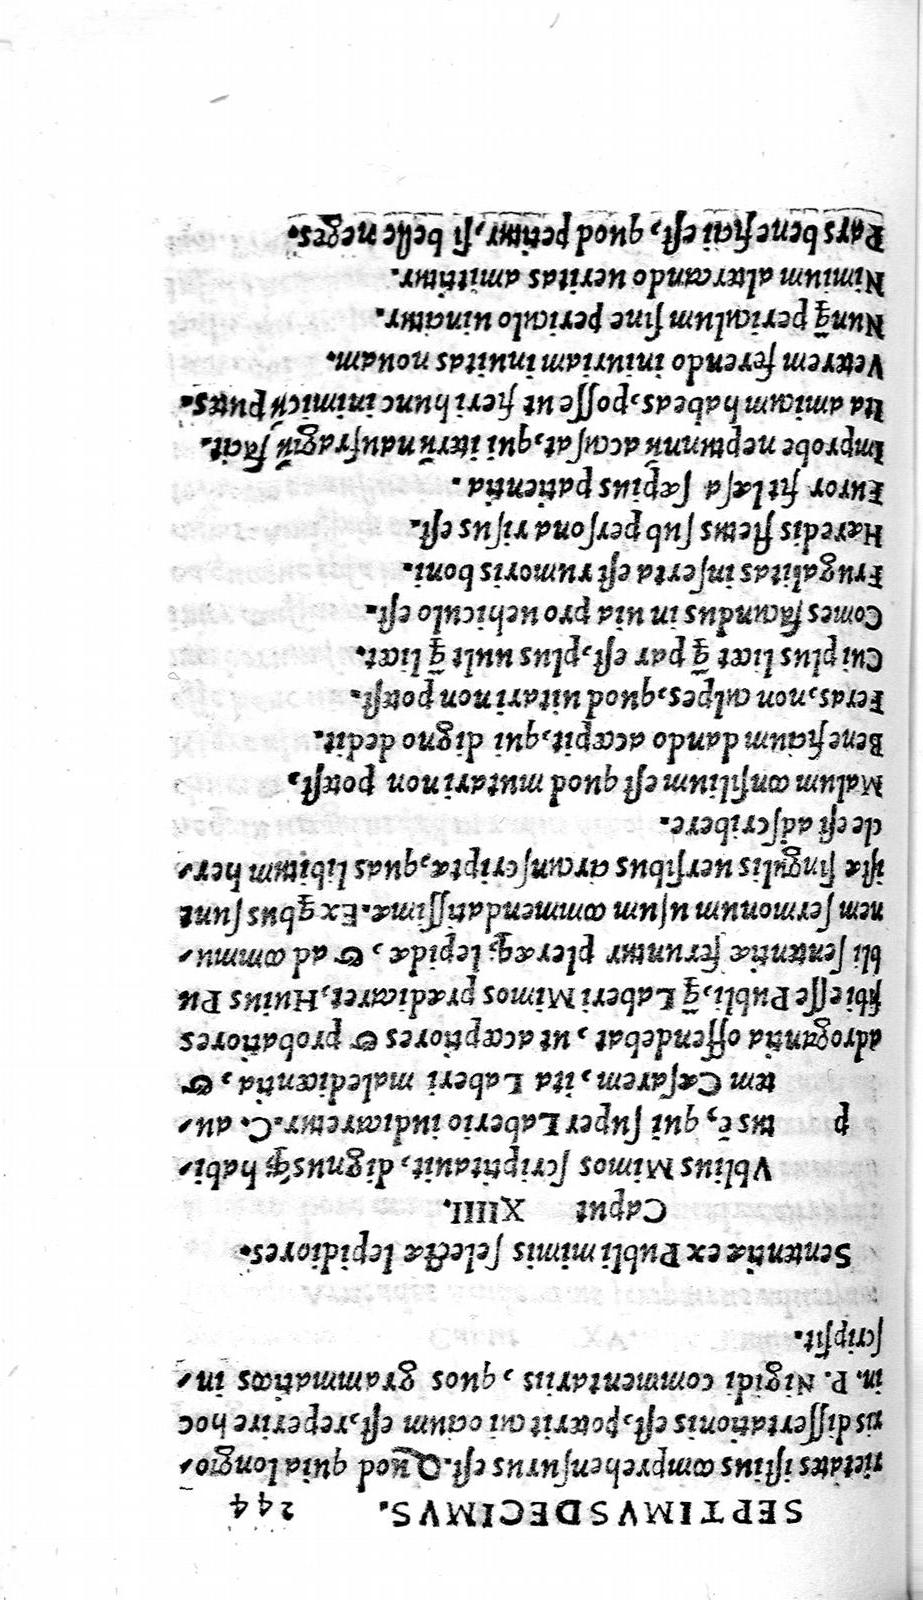 SEPTIMVS DECIMVS. 244
rietates istius comprehensurus est. Quod quia longio-
ris dissertationis est, poterit cui ocium est, reperire hoc
in. P. Nigidi commentariis, quos grammaticos in-
scripsit.
Sententiæ ex Publi mimis selectæ lepidiores.
Caput XIIII.
Vblius Mimos scriptitauit, dignusq́ habi-
p tus ē, qui super Laberio iudicaretur. C. au-
tem Cæsarem, ita Laberi maledicentia, &
adrogantia offendebat, ut acceptiores & probatiores
sibi esse Publi, q̄ Laberi Mimos prædicaret, Huius Pu
bli sententiæ feruntur pleræq́; lepidæ, & ad commu-
nem sermonum usum commendatissimæ. Ex qbus sunt
istæ singulis uersibus circunscriptæ, quas libitum her-
cle est adscribere.
Malum consilium est quod mutari non potest,
Beneficium dando accepit, qui digno dedit.
Feras, non culpes, quod uitari non potest.
Cui plus licet q̄ par est, plus uult q̄ licet.
Comes facundus in uia pro uehiculo est.
Frugalitas inserta est rumoris boni.
Hæredis fletus sub persona risus est.
Furor fit læsa sæpius patientia.
Improbe neptunū accusat, qui iterū naufragiū facit.
Ita amicum habeas, posse ut fieri hunc inimicū putes.
Veterem ferendo iniuriam inuitas nouam.
Nunq̄ periculum sine periculo uincitur.
Nimium altercando ueritas amittitur.
Pars benefici est, quod petitur, si belle neges.